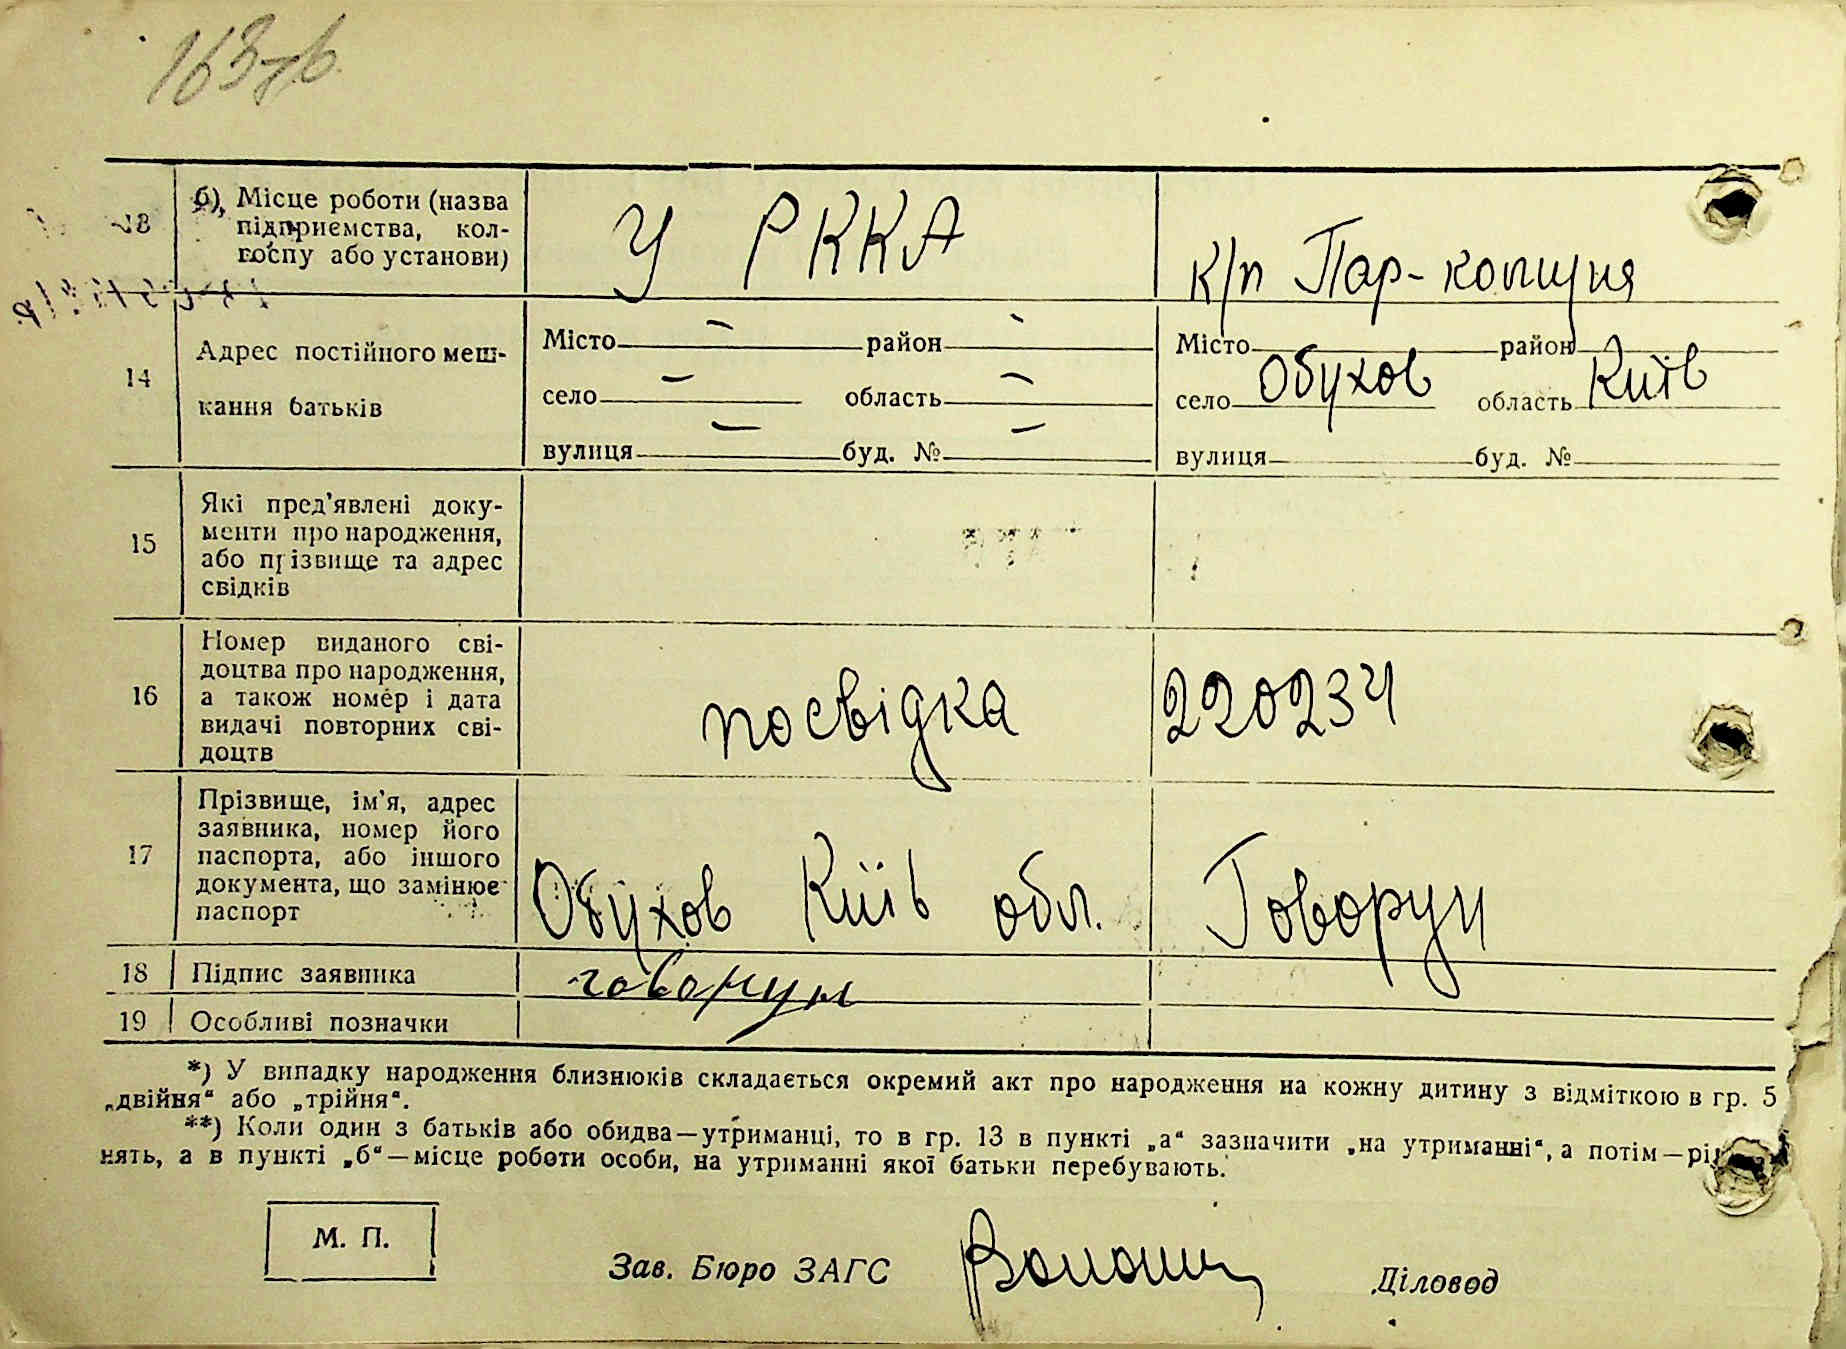 163 зв.
13 б) Місце роботи (назва
підприємства, кол-
госпу або установи)
У РККА
к/п Пар-комуния
14 Адрес постійного меш-
кання батьків
Місто — район —
село — область —
вулиця — буд. № —
Місто район
село Обухов область Київ
вулиця буд. №
15 Які пред'явлені доку-
менти про народження,
або прізвище та адрес
свідків
16 Номер виданого сві-
доцтва про народження,
а також номер і дата
видачі повторних сві-
доцтв
посвідка 220234
17 Прізвище, ім'я, адрес
заявника, номер його
паспорта, або іншого
документа, що замінює
паспорт
Обухов Київ обл. Говорун
18 Підпис заявника говорун
19 Особливі позначки
*) У випадку народження близнюків складається окремий акт про народження на кожну дитину з відміткою в гр. 5
„двійня“ або „трійня“.
**) Коли один з батьків або обидва—утриманці, то в гр. 13 в пункті „а“ зазначити „на утриманні“, а потім—рід
нять, а в пункті „б“—місце роботи особи, на утриманні якої батьки перебувають.
М. П.
Зав. Бюро ЗАГС
Діловод